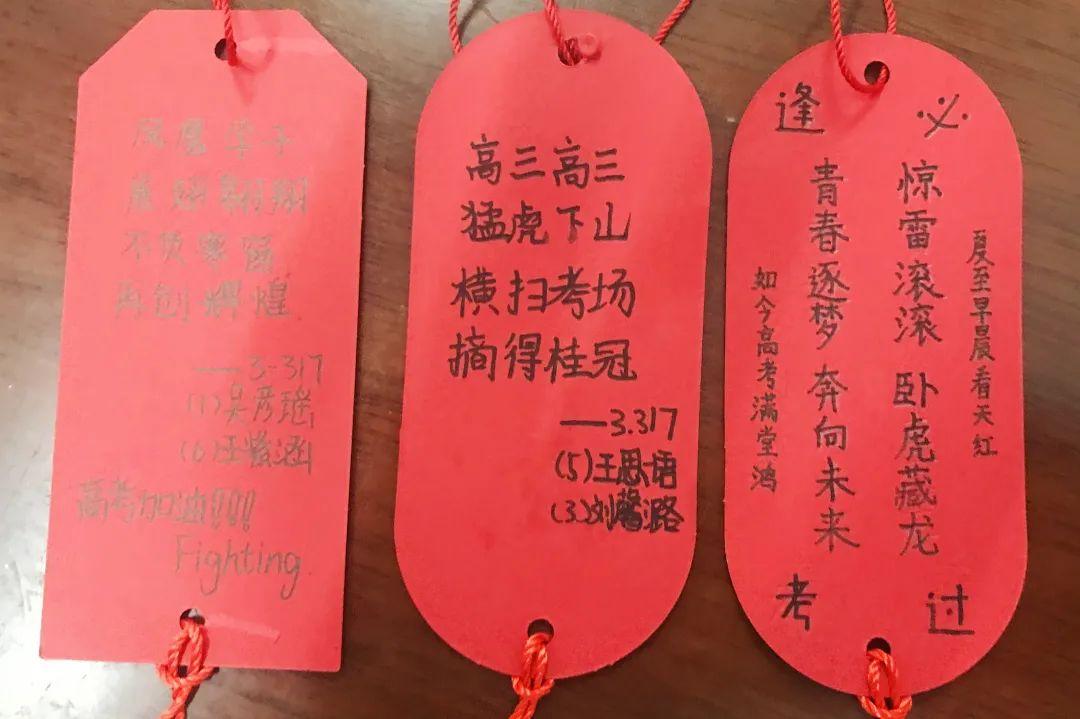 学子
展翅翱翔
不负寒窗
再创辉煌
——3-317
(1)吴彦瑶
(6)王紫涵
高考加油!!!!
Fighting
高三高三
猛虎下山
横扫考场
摘得桂冠
——3.317
(5)王思语
(3)刘馨潞
逢考
必过
夏至早晨看天红
惊雷滚滚 卧虎藏龙
青春逐梦 奔向未来
如今高考满堂鸿